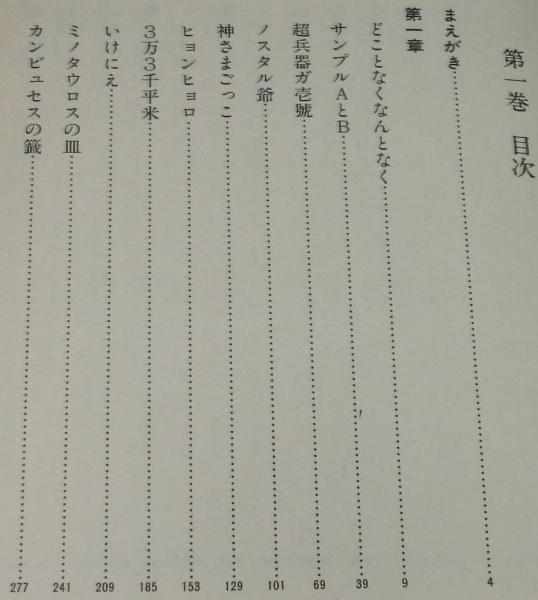 第一巻 目次
まえがき……4
第一章
どことなくなんとなく……9
サンプルAとB……39
超兵器ガ壱號……69
ノスタル爺……101
神さまごっこ……129
ヒョンヒョロ……153
3万3千平米……185
いけにえ……209
ミノタウロスの皿……241
カンビュセスの籤……277